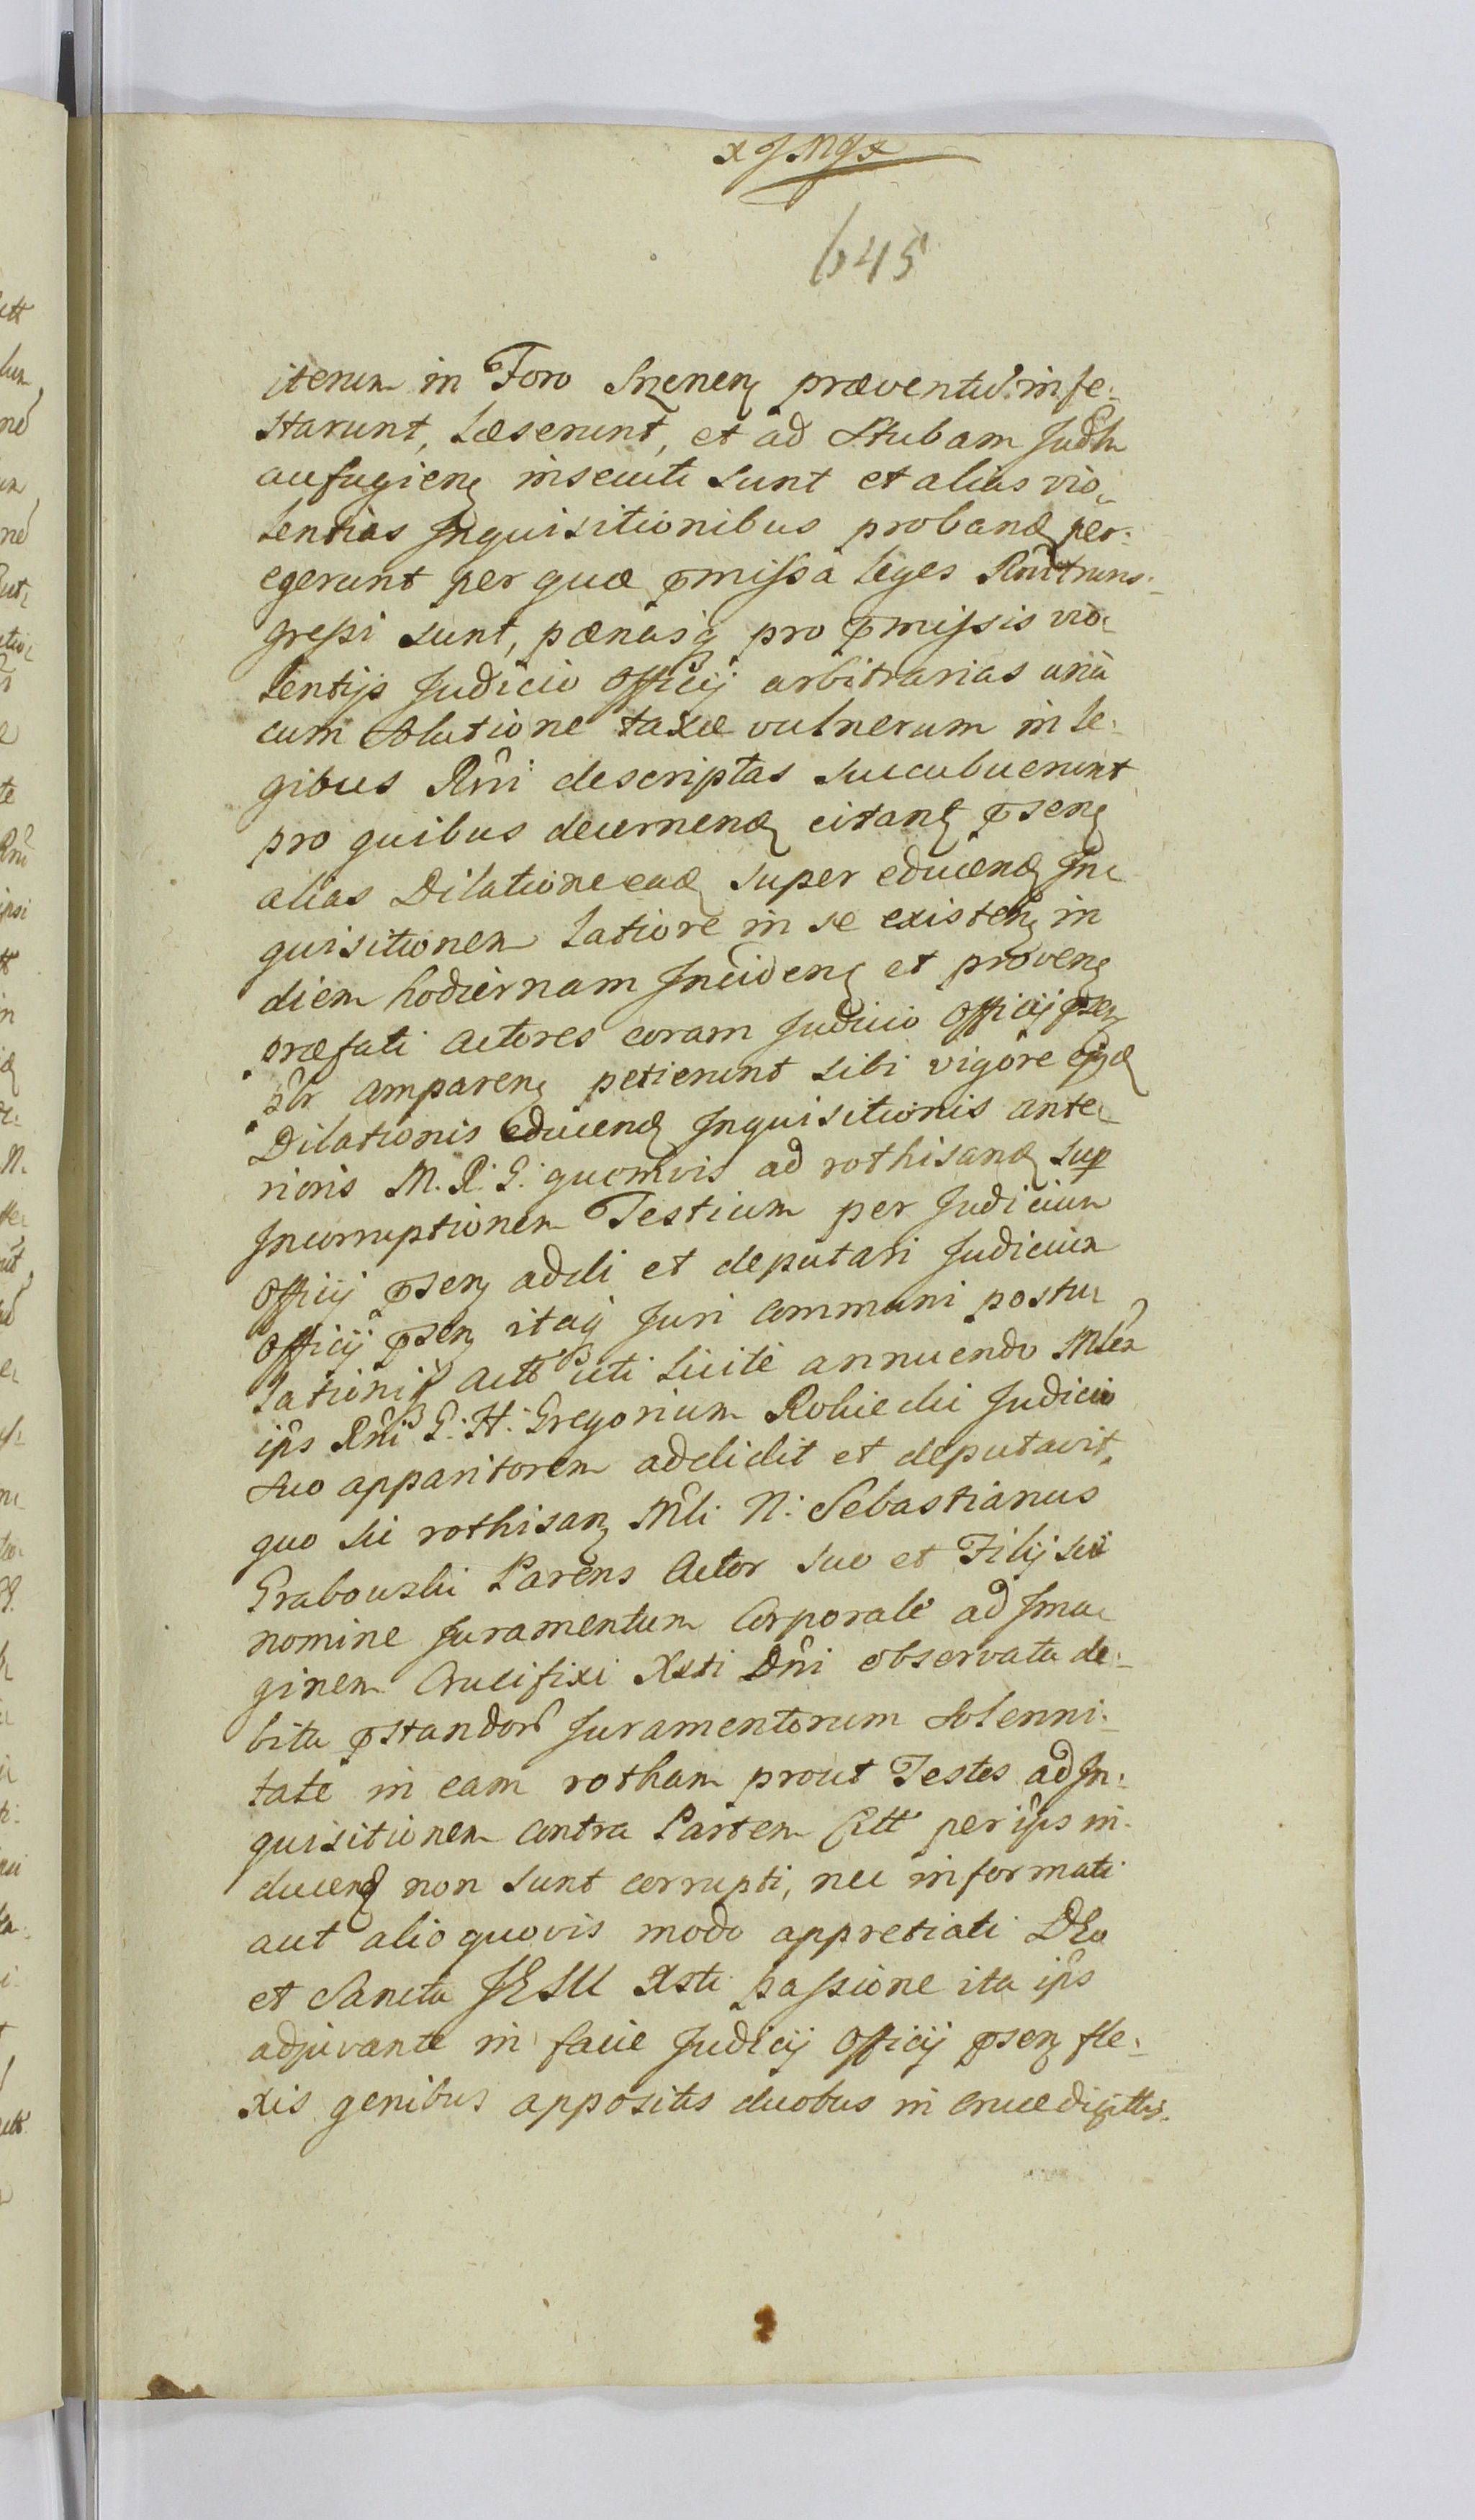 645
iterum in Foro Srzenen praeventus infe:
starunt, laeserunt, et ad Stubam Judlm
aufugien insecuti sunt et alias vio:
lentias Inquisitionibus proband per:
egerunt per quae pmissa leges Rni trans:
gressi sunt, paenasq pro pmissis vio:
lentijs Judicio Officij arbitrarias una
cum solutione taxae vulnerum in le:
gibus Rni descriptas succubuerunt
pro quibus decernend citant psen
alias Dilatione ead super educend In:
quisitionem latiore in se existen in
diem hodiernam Inciden et proven
praefati actores coram Judicio Officij psen
plr comparen petierunt sibi vigore ejusd
Dilationis educend Inquisitionis ante:
rioris M. R. G. quemvis ad rothisand sup
Incorruptionem Testium per Judicium
Officij psen addi et deputari Judicium
Officij psen itaq Juri communi postu:
lationiq actt uti licite annuendo Mlem
ips Rni G. H. Gregorium Robiecki Judicio
suo apparitorem addidit et deputavit,
quo sic rothisan Mli N: Sebastianus
Grabowski Parens Actor suo et Filij sui
nomine Juramentum Corporale ad Ima:
ginem Crucifixi Xsti Dni observata de:
bita pstandor Juramentorum solenni:
tate in eam rotham prout Testes ad In:
quisitionem contra Partem Citt per ips in:
ducend non sunt corrupti, nec informati
aut alio quovis modo appretiati DEo
et Sancta JESU Xsti passione ita ips
adjuvante in facie Judicij Officij psen fle:
xis genibus appositis duobus in cruce digittis.